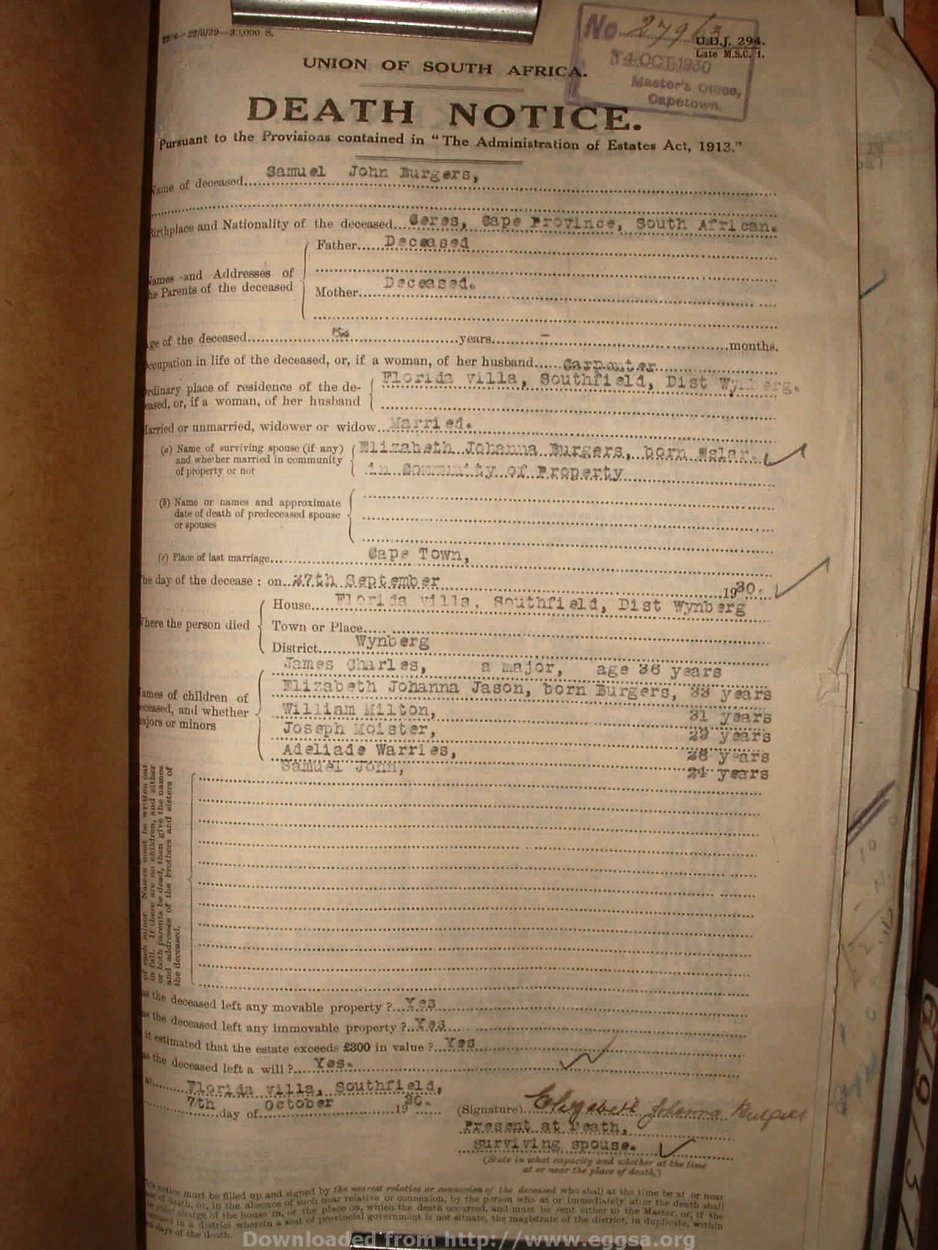 22/8/29—30,000 S.
No 27963
U.D.J. 294.
Late M.S.C. 1.
OCT 1930
Master's Office,
Capetown.
UNION OF SOUTH AFRICA.
DEATH NOTICE.
Pursuant to the Provisions contained in "The Administration of Estates Act, 1913."
Name of deceased Samuel John Burgers,
Birthplace and Nationality of the deceased Ceres, Cape Province, South African.
Names and Addresses of the Parents of the deceased
Father Deceased
Mother Deceased.
Age of the deceased years - months.
Occupation in life of the deceased, or, if a woman, of her husband Carpenter
Ordinary place of residence of the deceased, or, if a woman, of her husband
Florida Villa, Southfield, Dist Wynberg.
Married or unmarried, widower or widow Married.
(a) Name of surviving spouse (if any)
and whether married in community
of property or not
Elizabeth Johanna Burgers, born
in Community of Property
(b) Name or names and approximate
date of death of predeceased spouse
or spouses
(c) Place of last marriage Cape Town,
The day of the decease : on 27th September 1930.
Where the person died
House Florida Villa, Southfield, Dist Wynberg
Town or Place
District Wynberg
Names of children of
deceased, and whether
majors or minors
James Charles, a major, age 36 years
Elizabeth Johanna Jason, born Burgers, 33 years
William Milton, 31 years
Joseph Moister, 29 years
Adeliade Warries, 26 years
Samuel John, 24 years
of each minor. Names must be written out
in full. If there are no children, and either
or both parents be dead, then give the names
and addresses of the brothers and sisters of
the deceased.
the deceased left any movable property ? Yes
the deceased left any immovable property ? Yes
it estimated that the estate exceeds £300 in value ? Yes
the deceased left a will ? Yes.
at Florida Villa, Southfield,
7th day of October 1930.
(Signature) Elizabeth Johanna Burgers
Present at Death,
surviving spouse.
(State in what capacity and whether at the time
at or near the place of death.)
notice must be filled up and signed by the nearest relative or connexion of the deceased who shall at the time be at or near
of death, or, in the absence of such near relative or connexion, by the person who at or immediately after the death shall
charge of the house in, or the place on, which the death occurred, and must be sent either to the Master, or, if the
in a district wherein a seat of provincial government is not situate, the magistrate of the district, in duplicate, within
days of the death.
Downloaded from http://www.eggsa.org